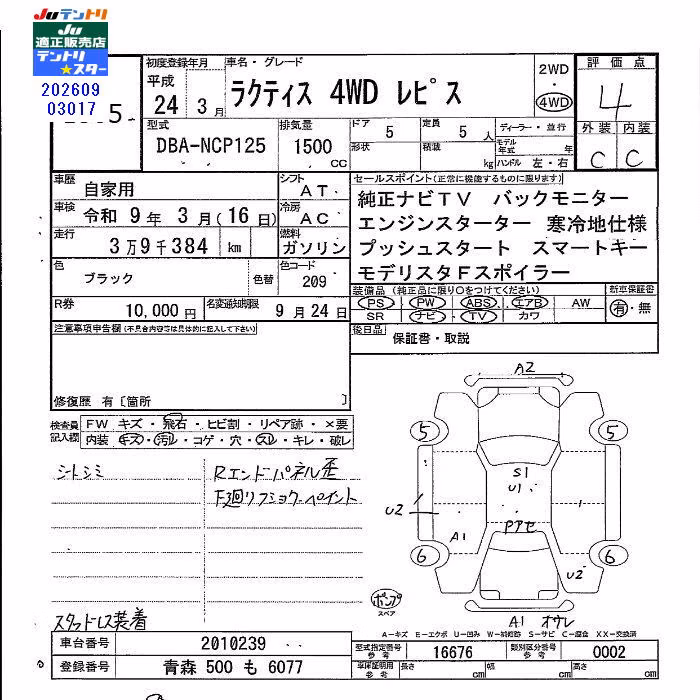 JUテントリ
JU
適正販売店
テントリ
★スター
202609
03017
5
初度登録年月
平成
24 3月
車名・グレード
ラクティス 4WD レピス
2WD
・
4WD
評価点
4
外装 内装
C C
型式
DBA-NCP125
排気量
1500
CC
ドア
5
定員
5 人
形状
積載
kg
ディーラー・並行
モデル年式
年
ハンドル 左・右
車歴
自家用
シフト
AT
車検
令和 9年 3月(16日)
冷房
AC
走行
3万9千384 km
燃料
ガソリン
色
ブラック
色替
色コード
209
R券
10,000円
名変通知期限
9月24日
セールスポイント(正常に機能するものに限ります)
純正ナビTV バックモニター
エンジンスターター 寒冷地仕様
プッシュスタート スマートキー
モデリスタFスポイラー
装備品(純正品に限り○をつけてください)
PS PW ABS エアB AW
SR ナビ TV カワ
新車保証書
有・無
後日品
保証書・取説
注意事項申告欄(不具合内容等は具体的に記入して下さい)
修復歴 有〔箇所 〕
検査員
記入欄
FW キズ・飛石・ヒビ割・リペア跡・×要
内装 キズ・汚れ・コゲ・穴・スレ・キレ・破レ
シートシミ
Rエンドパネル歪
下廻リフショクペイント
スタッドレス装着
A2
5
5
S1
U1
U2
1
A1
Pアセ
6
6
U2
ポンプ
スペア
A1 オサレ
A-キズ E-エクボ U-凹み W-補修跡 S-サビ C-腐食 XX-交換済
車台番号
2010239
登録番号
青森 500 も 6077
型式指定番号
参考
16676
類別区分番号
参考
0002
車庫証明用
参考
長さ cm
幅 cm
高さ cm